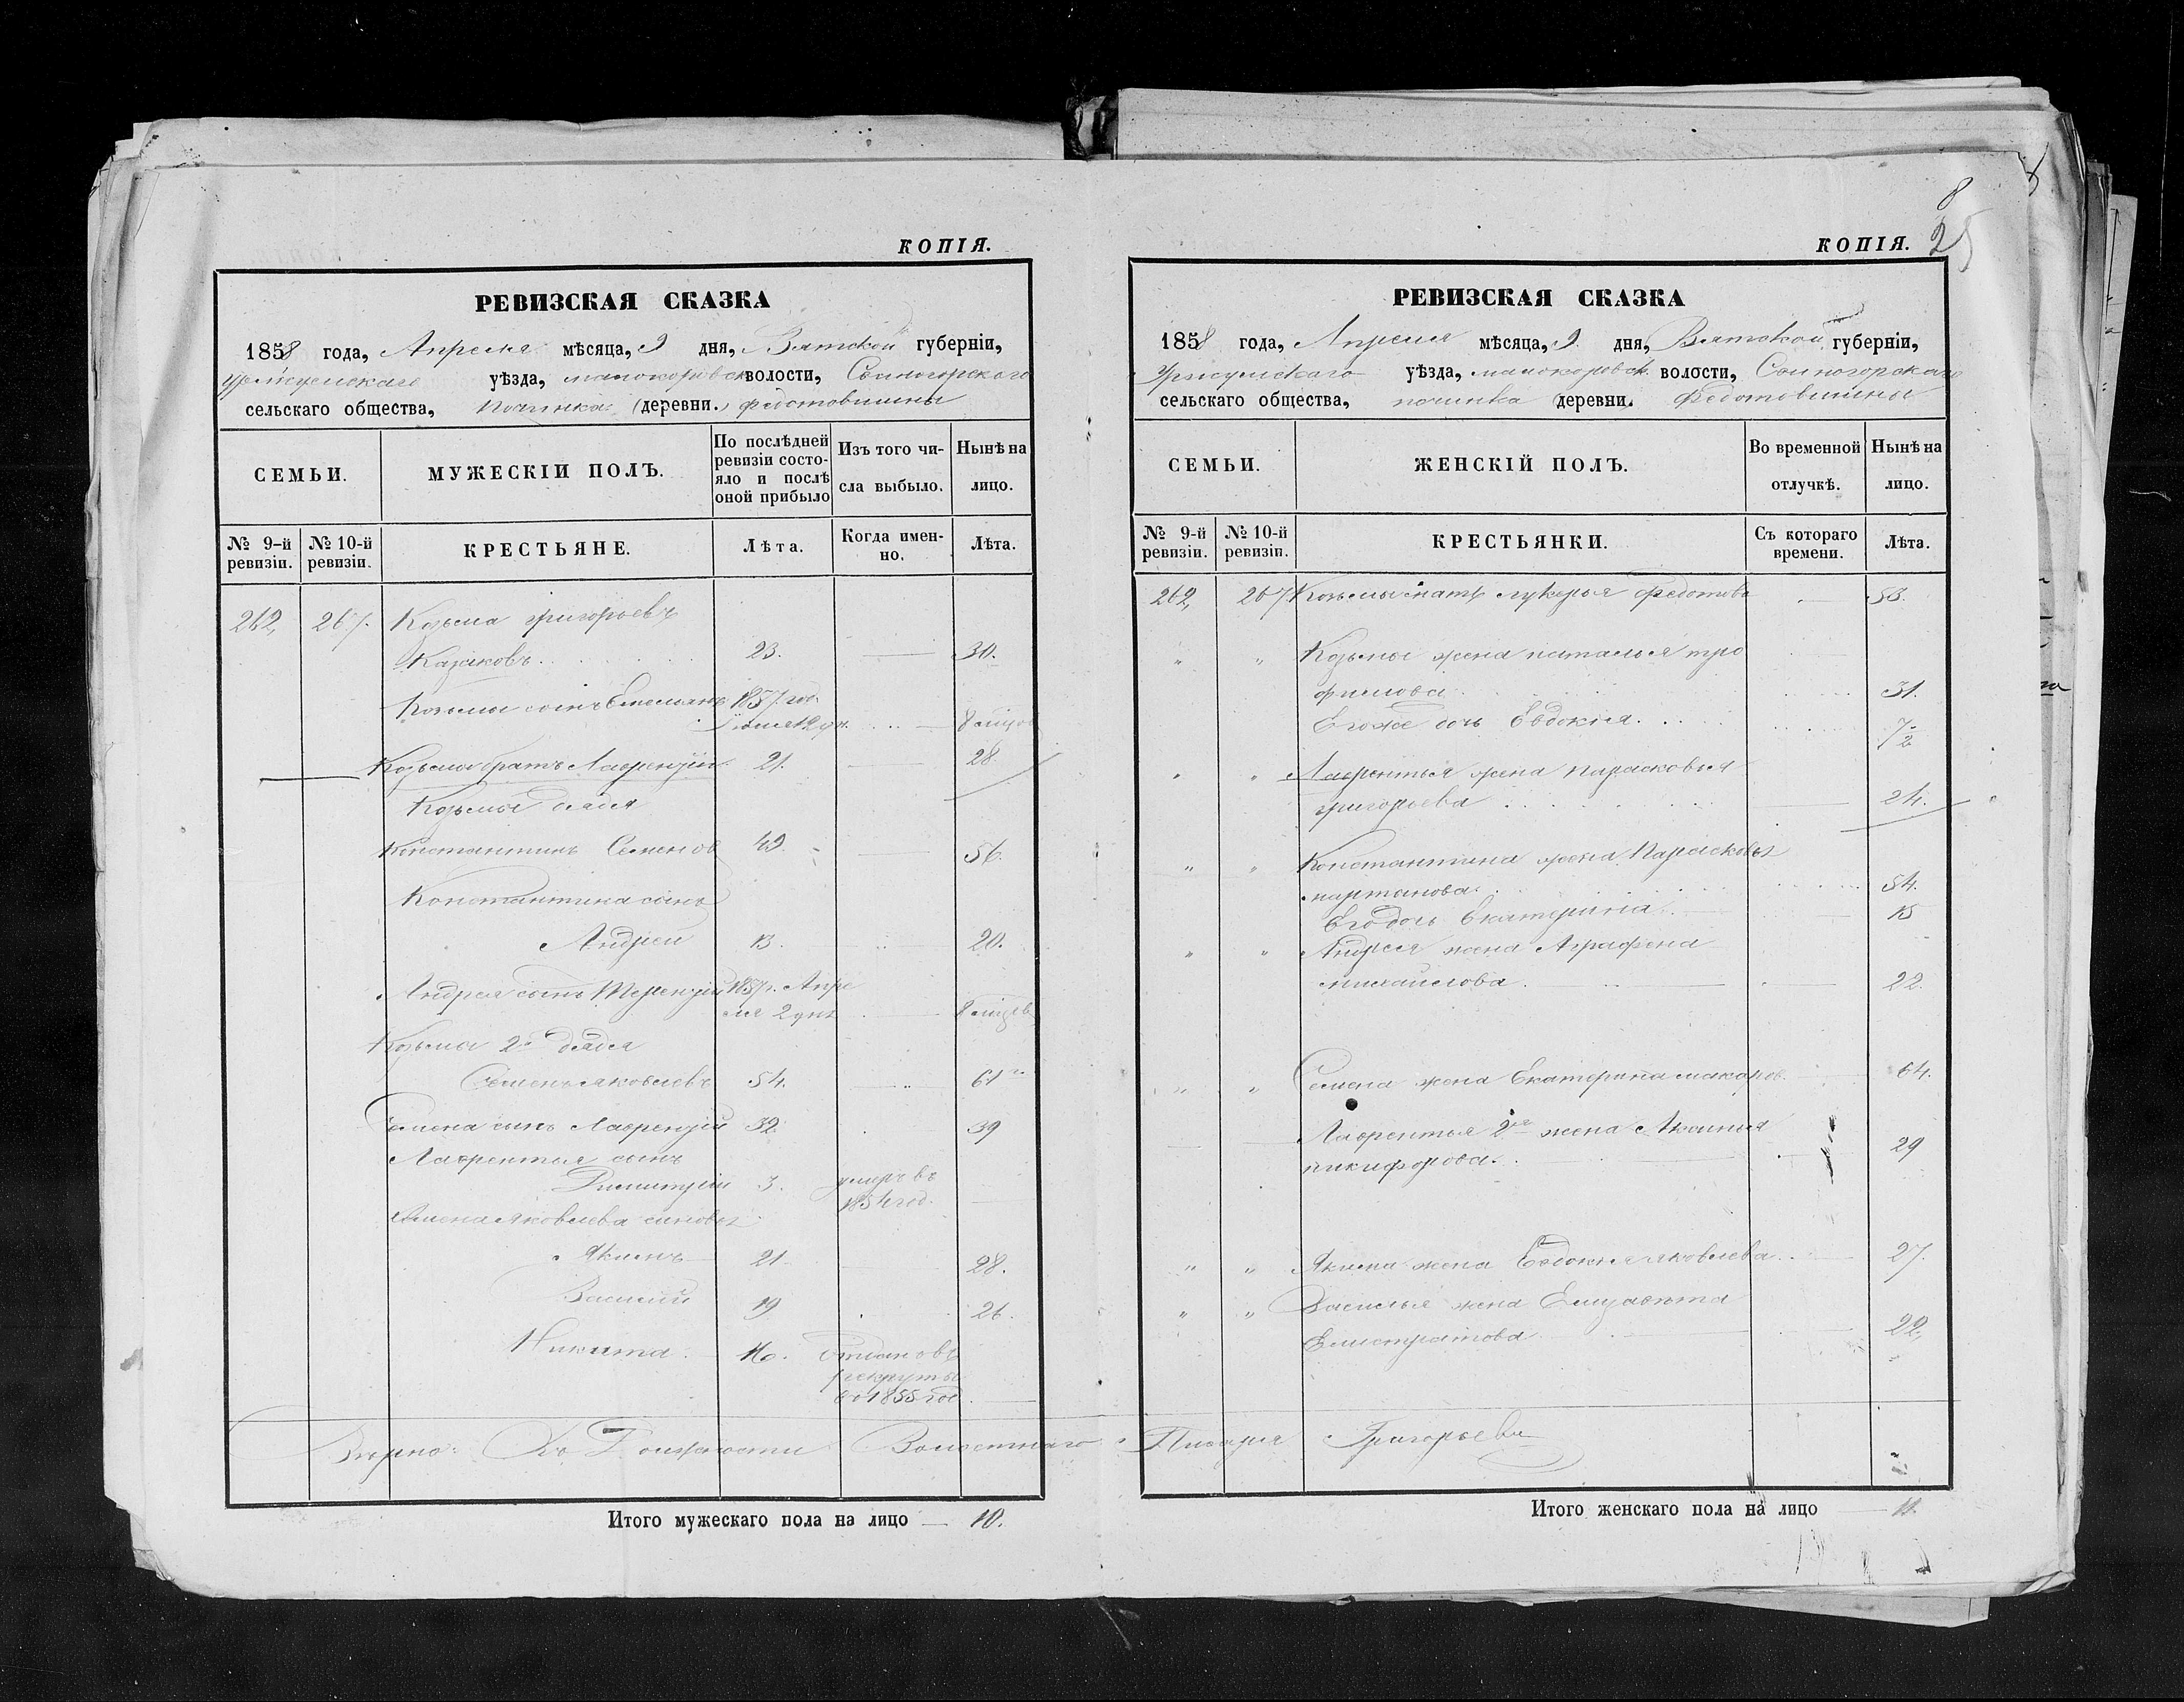 8
КОПІЯ.
РЕВИЗСКАЯ СКАЗКА
1858 года, Апреля мѣсяца, 9 дня, Вятской губерніи,
Уржумскаго уѣзда, волости,
сельскаго общества, Починка (деревни.) Федотовшины
СЕМЬИ.
МУЖЕСКІЙ ПОЛЪ.
По послѣдней ревизіи состояло и послѣ оной прибыло
Изъ того числа выбыло.
Нынѣ на лицо.
№ 9-й ревизіи.
№ 10-й ревизіи.
КРЕСТЬЯНЕ.
Лѣта.
Когда именно.
Лѣта.
262, 267. Козьма Григорьевъ
Казаковъ 23. 30.
Козьмы сынъ Емельянъ 1857 год.
Козьмы братъ Лаврентій 21. 28.
Козьмы дядя
Константинъ Семенов 49. 56.
Константина сынъ
Андрей 13. 20.
Андрея сынъ Терентій 1857 г. Апре
ля 2 дня
Козьмы 2й дядя
Семенъ Яковлевъ 54. 61
Семена сынъ Лаврентій 32. 39
Лаврентья сынъ
Димитрій 3. умеръ въ
1854 год.
Семена Яковлева сыновья
Якимъ 21 28.
Василій 19 26.
Никита. 16. Отданъ въ
рекруты
в 1855 год
Вѣрно: Волостнаго
Итого мужескаго пола на лицо — 10.
КОПІЯ. 25
РЕВИЗСКАЯ СКАЗКА
1858 года, Апреля мѣсяца, 9 дня, Вятской губерніи,
Уржумскаго уѣзда, волости,
сельскаго общества, починка деревни. Федотовшины
СЕМЬИ.
ЖЕНСКІЙ ПОЛЪ.
Во временной отлучкѣ.
Нынѣ на лицо.
№ 9-й ревизіи.
№ 10-й ревизіи.
КРЕСТЬЯНКИ.
Съ котораго времени.
Лѣта.
262, 267 Козьмы мать Лукерья Федотова 53.
" " Козьмы жена Наталья Тро
фимова 31.
Егоже дочь Евдокия 7 1/2
" " Лаврентья жена Парасковья
Григорьева 24.
" " Константина жена Парасковья
Мартынова 54.
Его дочь Екатерина 15
" " Андрея жена Аграфена
Михайлова 22.
" " Семена жена Екатерина Макаров. 64.
Лаврентья 2я жена Аксинья
Никифорова. 29
" " Якима жена Евдокия Яковлева 27.
" " Василья жена Елизавета
Елистратова 22.
Писаря Григорьевъ
Итого женскаго пола на лицо — 11.